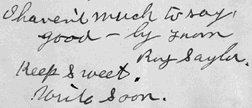 I haven't much to say,
good - by from
Roy Saylor.
Keep Sweet.
Write Soon.